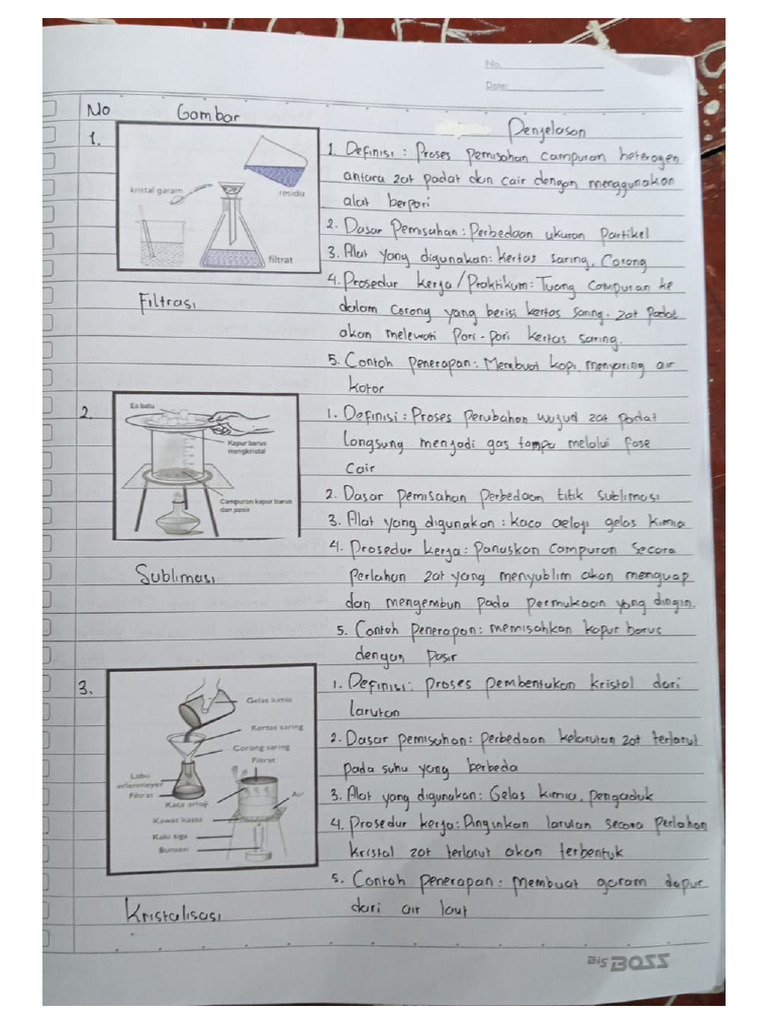 No.
Date:
No Gambar Penjelasan
1.
kristal garam
residu
filtrat
Filtrasi
1. Definisi : Proses pemisahan campuran heterogen
antara zat padat dan cair dengan menggunakan
alat berpori
2. Dasar Pemisahan : Perbedaan ukuran partikel
3. Alat yang digunakan : kertas saring, Corong
4. Prosedur kerja / Praktikum : Tuang campuran ke
dalam corong yang berisi kertas saring. zat padat
akan melewati Pori-pori kertas saring.
5. Contoh penerapan : Membuat kopi, menyaring air
kotor
2.
Es batu
Kapur barus
mengkristal
Campuran kapur barus
dan pasir
Sublimasi
1. Definisi : Proses perubahan wujud zat padat
langsung menjadi gas tanpa melalui fase
cair
2. Dasar pemisahan Perbedaan titik sublimasi
3. Alat yang digunakan : kaca arloji gelas kimia
4. Prosedur kerja : Panaskan campuran secara
perlahan zat yang menyublim akan menguap
dan mengembun pada permukaan yang dingin.
5. Contoh penerapan : memisahkan kapur barus
dengan pasir
3.
Gelas kimia
Kertas saring
Corong saring
Filtrat
Labu
erlenmeyer
Filtrat
Kaca arloji
Air
Kawat kassa
Kaki tiga
Bunsen
Kristalisasi
1. Definisi : proses pembentukan kristal dari
larutan
2. Dasar pemisahan : perbedaan kelarutan zat terlarut
pada suhu yang berbeda
3. Alat yang digunakan : Gelas kimia, pengaduk
4. Prosedur kerja : Dinginkan larutan secara perlahan
kristal zat terlarut akan terbentuk
5. Contoh penerapan : membuat garam dapur
dari air laut
Big BOSS